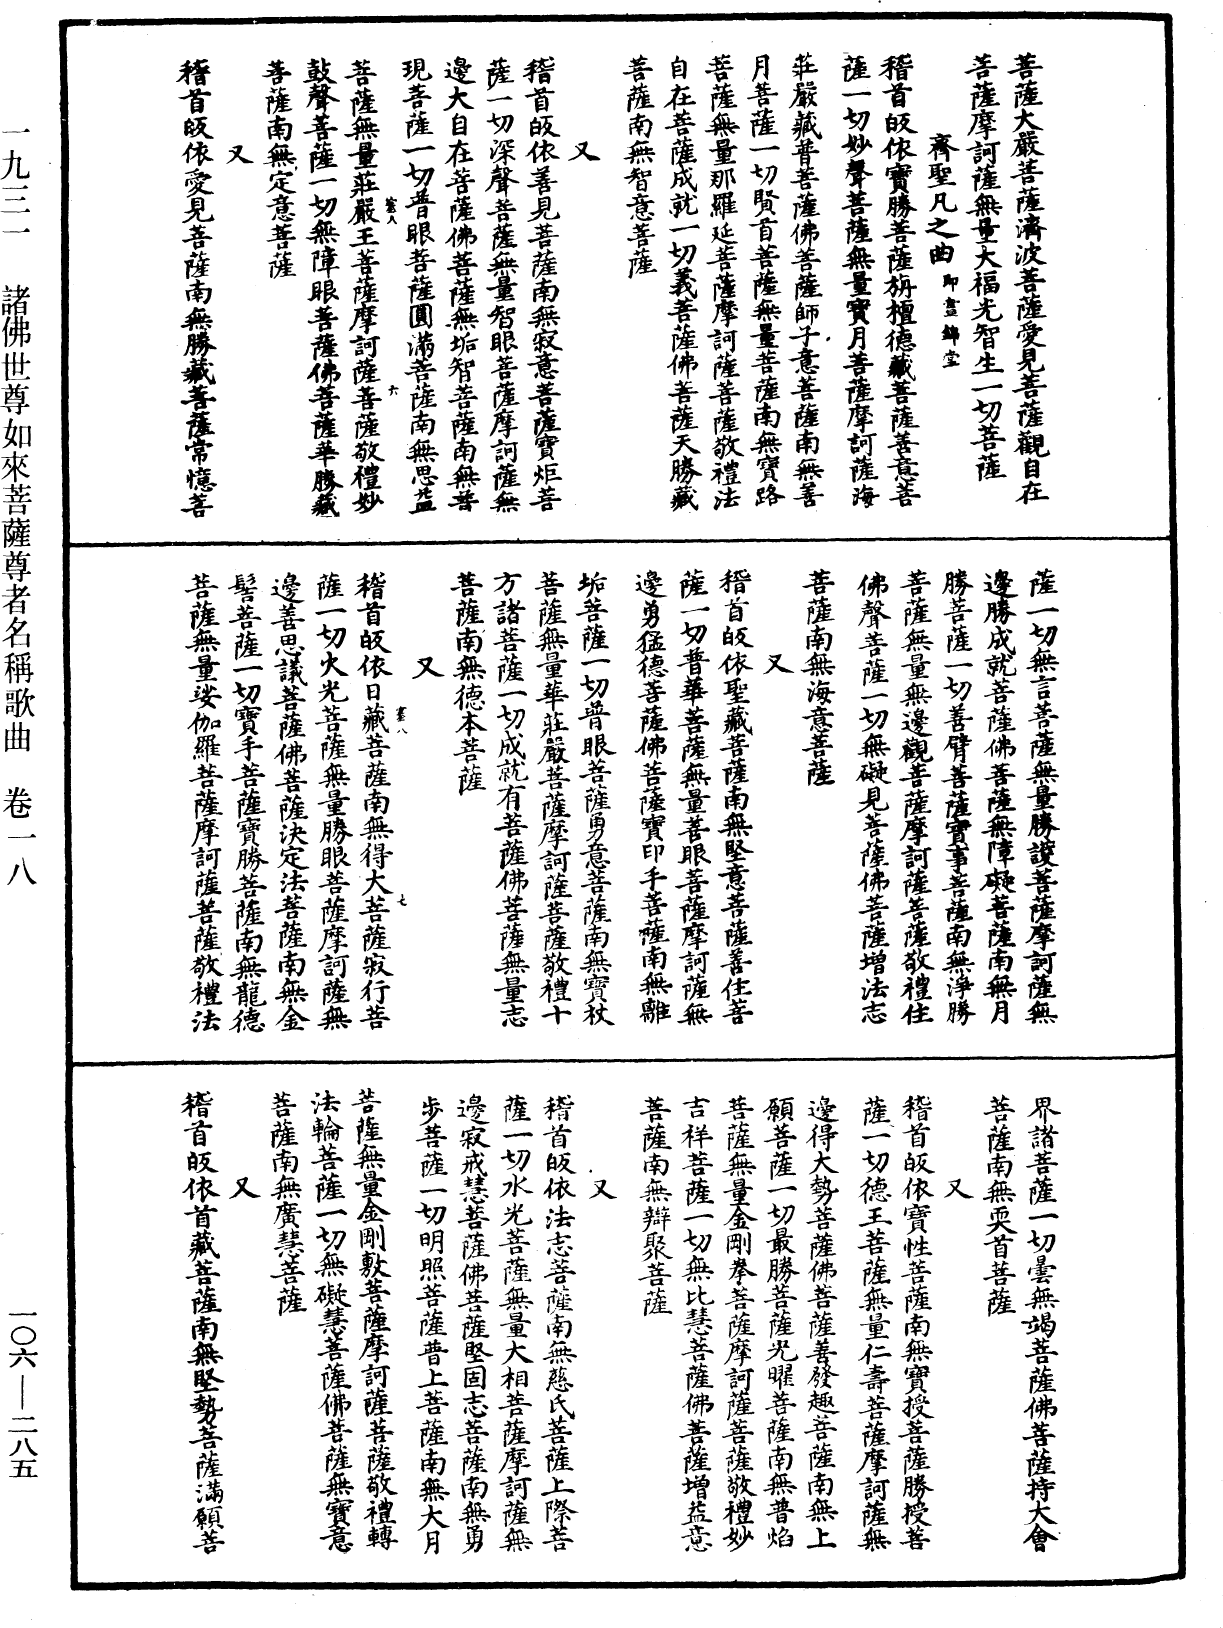 菩薩大嚴菩薩濟波菩薩愛見菩薩觀自在
菩薩摩訶薩無量大福光智生一切菩薩
齊聖凡之曲 即晝錦堂
稽首皈依寶勝菩薩旃檀德藏菩薩善意菩
薩一切妙聲菩薩無量寶月菩薩摩訶薩海
莊嚴藏普菩薩佛菩薩師子意菩薩南無善
月菩薩一切賢首菩薩無量菩薩南無寶路
菩薩無量那羅延菩薩摩訶薩菩薩敬禮法
自在菩薩成就一切義菩薩佛菩薩天勝藏
菩薩南無智意菩薩
又
稽首皈依善見菩薩南無寂意菩薩寶炬菩
薩一切深聲菩薩無量智眼菩薩摩訶薩無
邊大自在菩薩佛菩薩無垢智菩薩南無普
現菩薩一切普眼菩薩圓滿菩薩南無思益
菩薩無量莊嚴王菩薩摩訶薩菩薩敬禮妙
鼓聲菩薩一切無障眼菩薩佛菩薩華勝藏
菩薩南無定意菩薩
又
稽首皈依愛見菩薩南無勝藏菩薩常憶菩
薩一切無言菩薩無量勝護菩薩摩訶薩無
邊勝成就菩薩佛菩薩無障礙菩薩南無月
勝菩薩一切善臂菩薩寶事菩薩南無淨勝
菩薩無量無邊觀菩薩摩訶薩菩薩敬禮住
佛聲菩薩一切無礙見菩薩佛菩薩增法志
菩薩南無海意菩薩
又
稽首皈依聖藏菩薩南無堅意菩薩善住菩
薩一切普華菩薩無量善眼菩薩摩訶薩無
邊勇猛德菩薩佛菩薩寶印手菩薩南無離
垢菩薩一切普眼菩薩勇意菩薩南無寶杖
菩薩無量華莊嚴菩薩摩訶薩菩薩敬禮十
方諸菩薩一切成就有菩薩佛菩薩無量志
菩薩南無德本菩薩
又
稽首皈依日藏菩薩南無得大菩薩寂行菩
薩一切火光菩薩無量勝眼菩薩摩訶薩無
邊善思議菩薩佛菩薩決定法菩薩南無金
髻菩薩一切寶手菩薩寶勝菩薩南無龍德
菩薩無量娑伽羅菩薩摩訶薩菩薩敬禮法
界諸菩薩一切曇無竭菩薩佛菩薩持大會
菩薩南無耎首菩薩
又
稽首皈依寶性菩薩南無寶授菩薩勝授菩
薩一切德王菩薩無量仁壽菩薩摩訶薩無
邊得大勢菩薩佛菩薩善發趣菩薩南無上
願菩薩一切最勝菩薩光曜菩薩南無普焰
菩薩無量金剛拳菩薩摩訶薩菩薩敬禮妙
吉祥菩薩一切無比慧菩薩佛菩薩增益意
菩薩南無辯聚菩薩
又
稽首皈依法志菩薩南無慈氏菩薩上際菩
薩一切水光菩薩無量大相菩薩摩訶薩無
邊寂戒慧菩薩佛菩薩堅固志菩薩南無勇
步菩薩一切明照菩薩普上菩薩南無大月
菩薩無量金剛敷菩薩摩訶薩菩薩敬禮轉
法輪菩薩一切無礙慧菩薩佛菩薩無寶意
菩薩南無廣慧菩薩
又
稽首皈依首藏菩薩南無堅勢菩薩滿願菩
一九三一 諸佛世尊如來菩薩尊者名稱歌曲 卷一八
一〇六—二八五